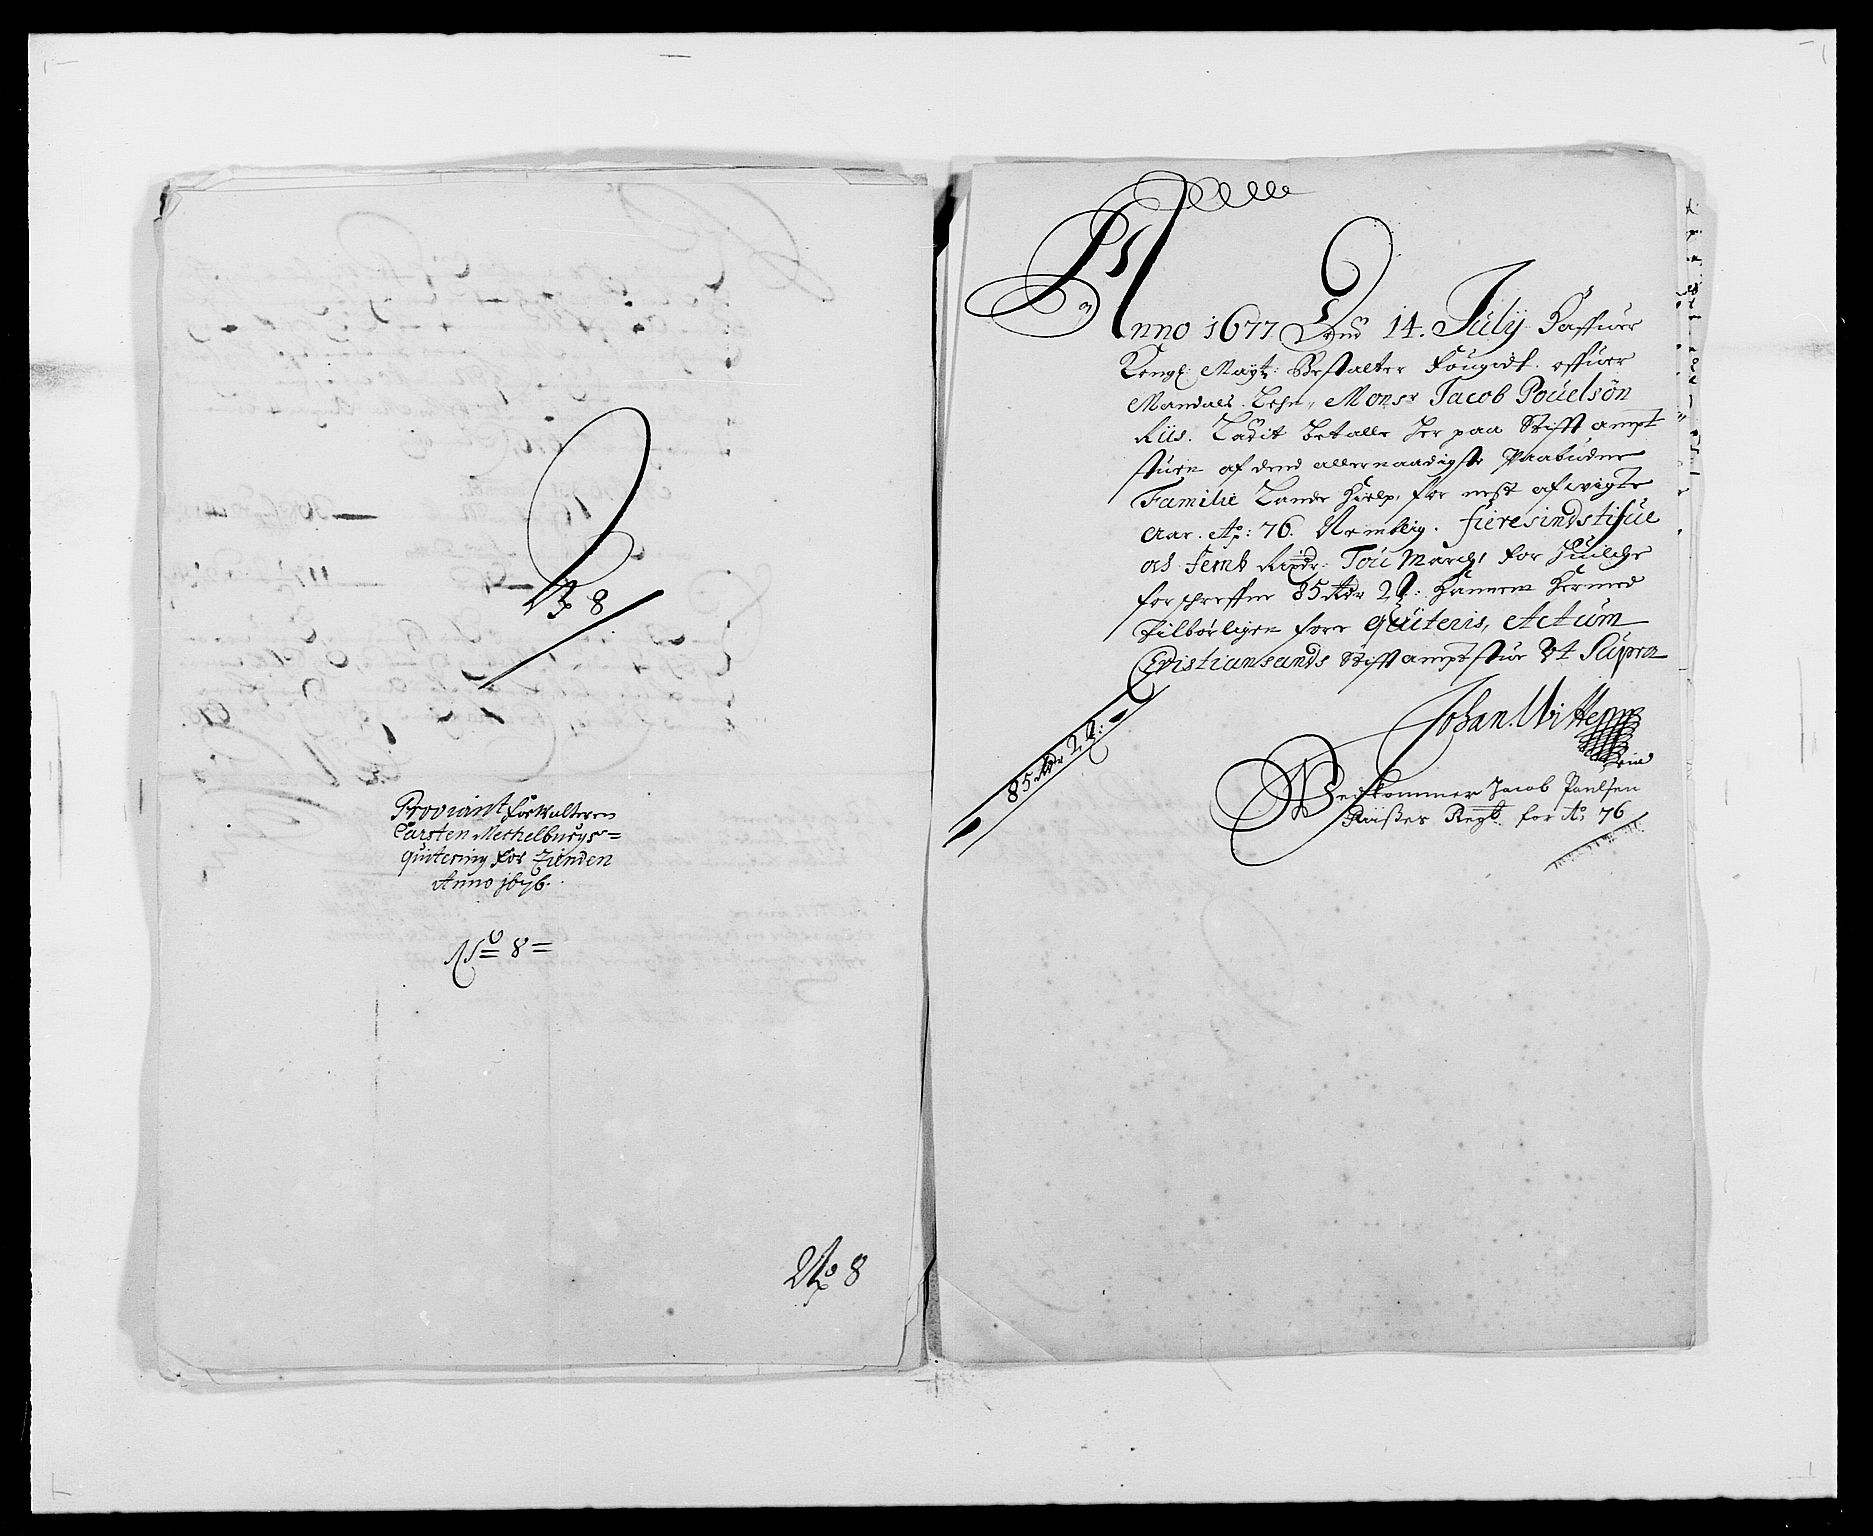 No 8
Proviant forwalteren
Carsten Mechelburgs=
quitering for Tienden
Anno 1676.
No 8=
No 8
Anno 1677 Dend 14. Julÿ Haffuer
Kongl: Maÿt: Bestalter Fougedt offuer
Mandals Lehn, Monsr Jacob Pouelsøn
Riis. Ladit betalle her paa Stifft ampt
stuen af dend allernaadigste Paabudne
Familie Lande Hielp, for nest afwigte
Aar. Ao: 76. Nemblig. fiersindstifue
och femb Rixdr. Tou March, for huilche
forschreffne 85 Rdr 2 ꝶ: Hannem hermed
tilbørligen forr quiteris, Actum
Cristiansands Stifft amptstue Ut Supra
Johan Witten
Eid
85 Rdr 2 ꝶ:
Wedkommer Jacob Poulsen
Riisses Regb for Ao: 76